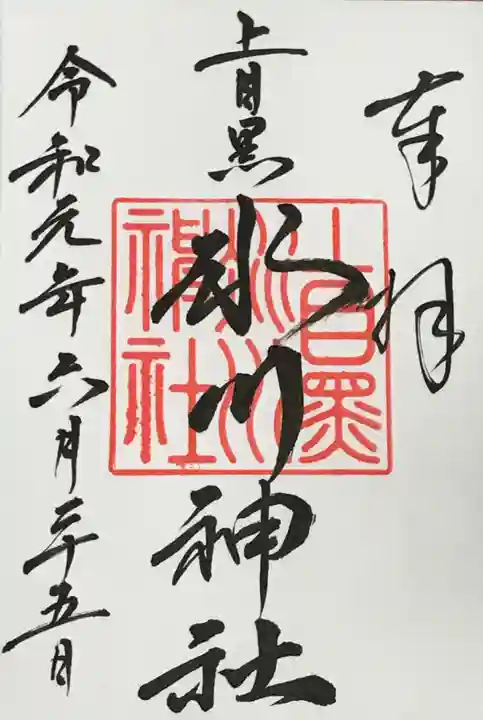 奉拝
上目黒
氷川神社
上目黒氷川神社
令和元年六月二十五日